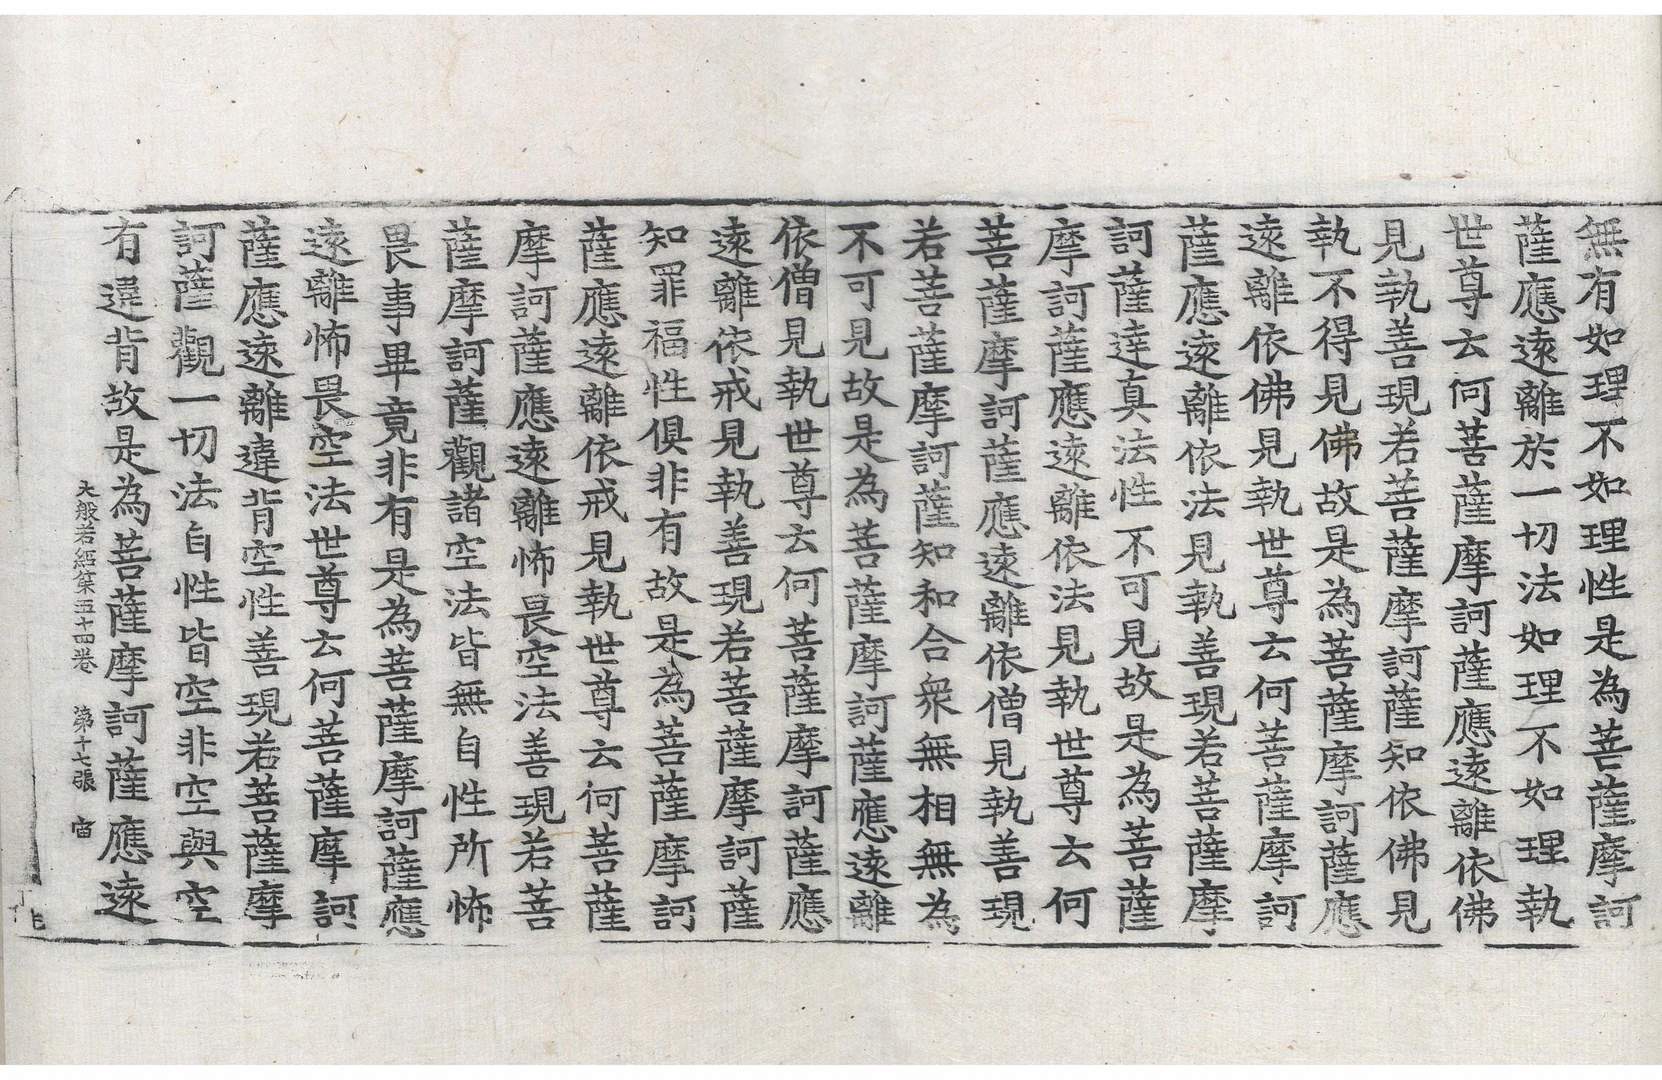 無有如理不如理性是為菩薩摩訶
薩應遠離於一切法如理不如理執
世尊云何菩薩摩訶薩應遠離依佛
見執善現若菩薩摩訶薩知依佛見
執不得見佛故是為菩薩摩訶薩應
遠離依佛見執世尊云何菩薩摩訶
薩應遠離依法見執善現若菩薩摩
訶薩達真法性不可見故是為菩薩
摩訶薩應遠離依法見執世尊云何
菩薩摩訶薩應遠離依僧見執善現
若菩薩摩訶薩知和合衆無相無為
不可見故是為菩薩摩訶薩應遠離
依僧見執世尊云何菩薩摩訶薩應
遠離依戒見執善現若菩薩摩訶薩
知罪福性俱非有故是為菩薩摩訶
薩應遠離依戒見執世尊云何菩薩
摩訶薩應遠離怖畏空法善現若菩
薩摩訶薩觀諸空法皆無自性所怖
畏事畢竟非有是為菩薩摩訶薩應
遠離怖畏空法世尊云何菩薩摩訶
薩應遠離違背空性善現若菩薩摩
訶薩觀一切法自性皆空非空與空
有違背故是為菩薩摩訶薩應遠
大般若經第五十四卷 第十七張 宙